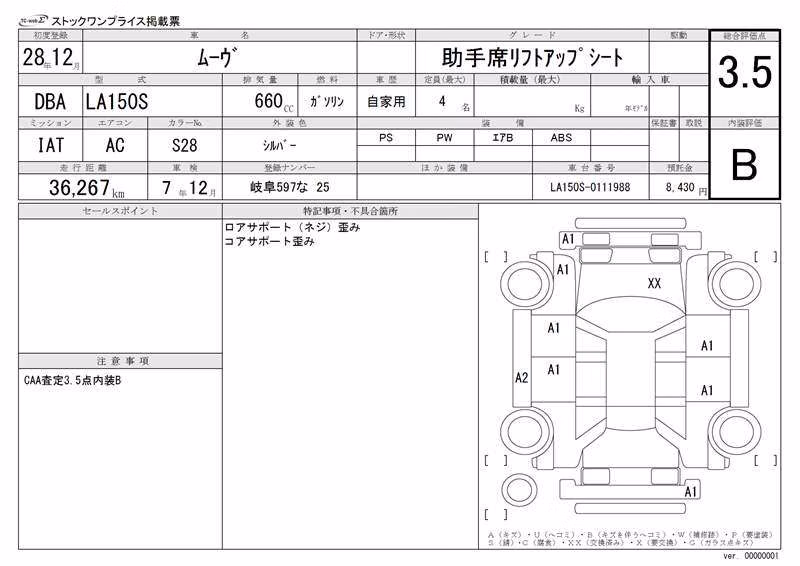 TC-webΣ ストックワンプライス掲載票
初度登録 車名 ドア・形状 グレード 駆動 総合評価点
28年12月 ムーヴ 助手席リフトアップシート 3.5
型式 排気量 燃料 車歴 定員(最大) 積載量(最大) 輸入車
DBA LA150S 660CC ガソリン 自家用 4名 Kg 年モデル
ミッション エアコン カラーNo. 外装色 装備 保証書 取説 内装評価
IAT AC S28 シルバー PS PW エアB ABS B
走行距離 車検 登録ナンバー ほか装備 車台番号 預託金
36,267km 7年12月 岐阜597な 25 LA150S-0111988 8,430円
セールスポイント 特記事項・不具合箇所
ロアサポート（ネジ）歪み
コアサポート歪み
注意事項
CAA査定3.5点内装B
A1
[ ] [ ]
A1
XX
A1
A1
A1
A2
A1
[ ] [ ]
A1
[ ]
A（キズ）・U（ヘコミ）・B（キズを伴うヘコミ）・W（補修跡）・P（要塗装）
S（錆）・C（腐食）・XX（交換済み）・X（要交換）・G（ガラス点キズ）
ver. 00000001